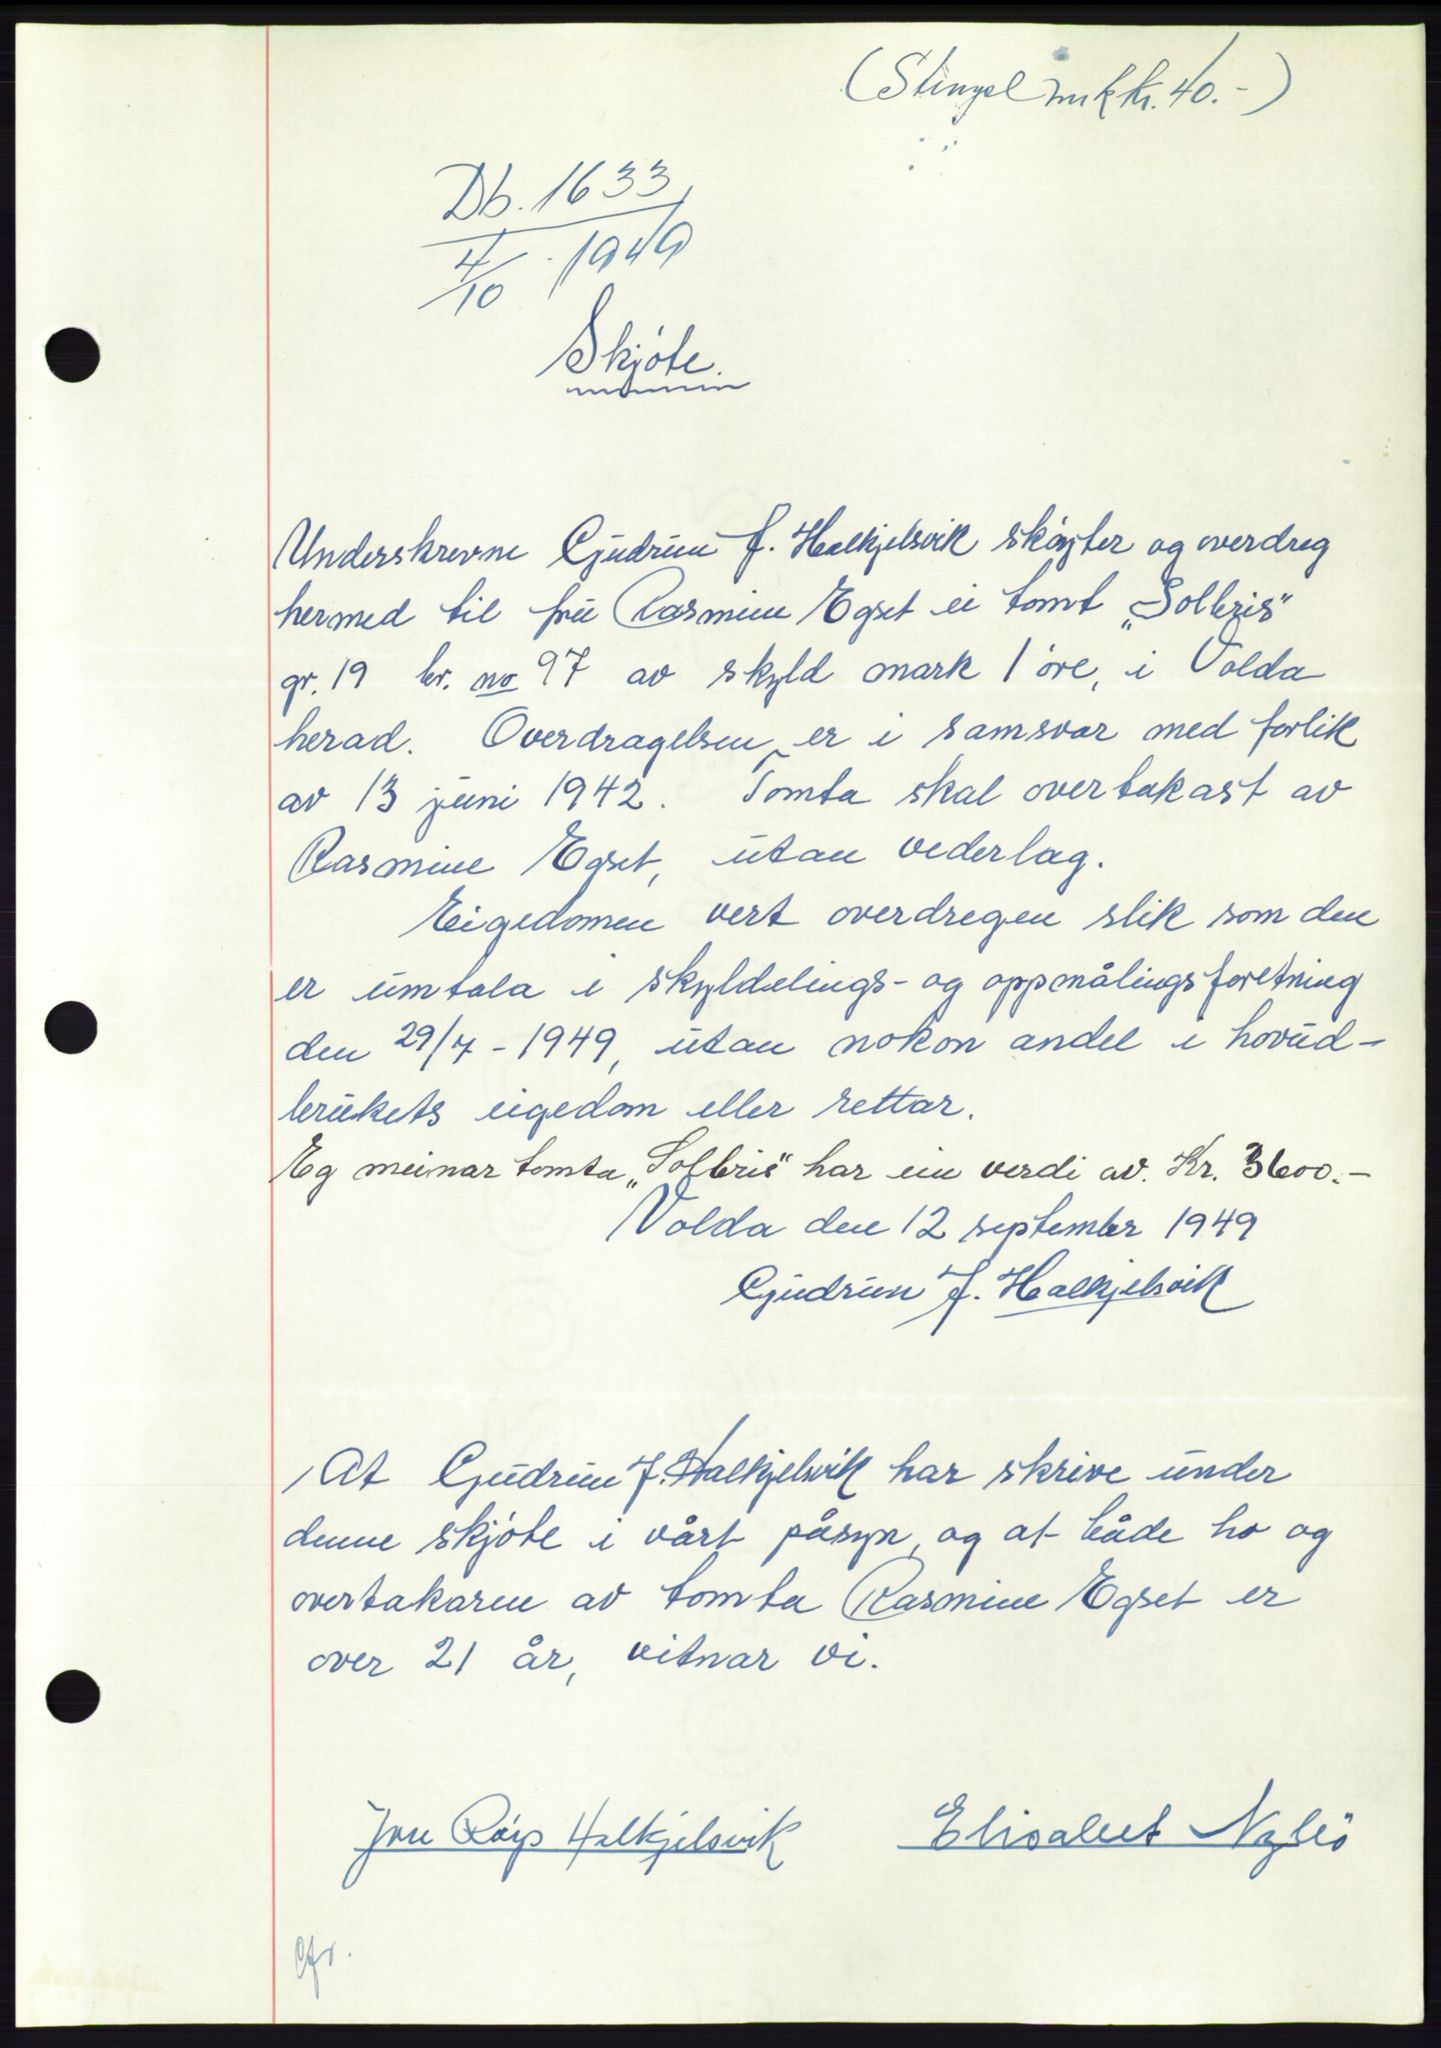 (Stempel mk kr. 40.-)
Db. 1633
4/10 . 1949
Skjöte.
Underskrevne Gudrun J. Halkjelsvik sköyter og overdreg
hermed til frü Rasmine Egset ei tomt „Solbris"
gr. 19 br. no 97 av skyld mark 1 öre, i Volda
herad. Overdragelsen er i samsvar med forlik
av 13 juni 1942. Tomta skal overtakast av
Rasmine Egset, utan vederlag.
Eigedomen vert overdregen slik som den
er umtala i skylddelings- og oppmålingsforetning
den 29/7 - 1949, utan nokon andel i hovud-
brukets eigedom eller rettar.
Eg meinar tomta „Solbris" har ein verdi av. Kr. 3600.-
Volda den 12 september 1949
Gudrun J. Halkjelsvik
At Gudrun J. Halkjelsvik har skrive under
denne skjöte i vårt påsyn, og at både ho og
overtakaren av tomta Rasmine Egset er
over 21 år, vitnar vi.
Jon Röys Halkjelsvik Elisabet